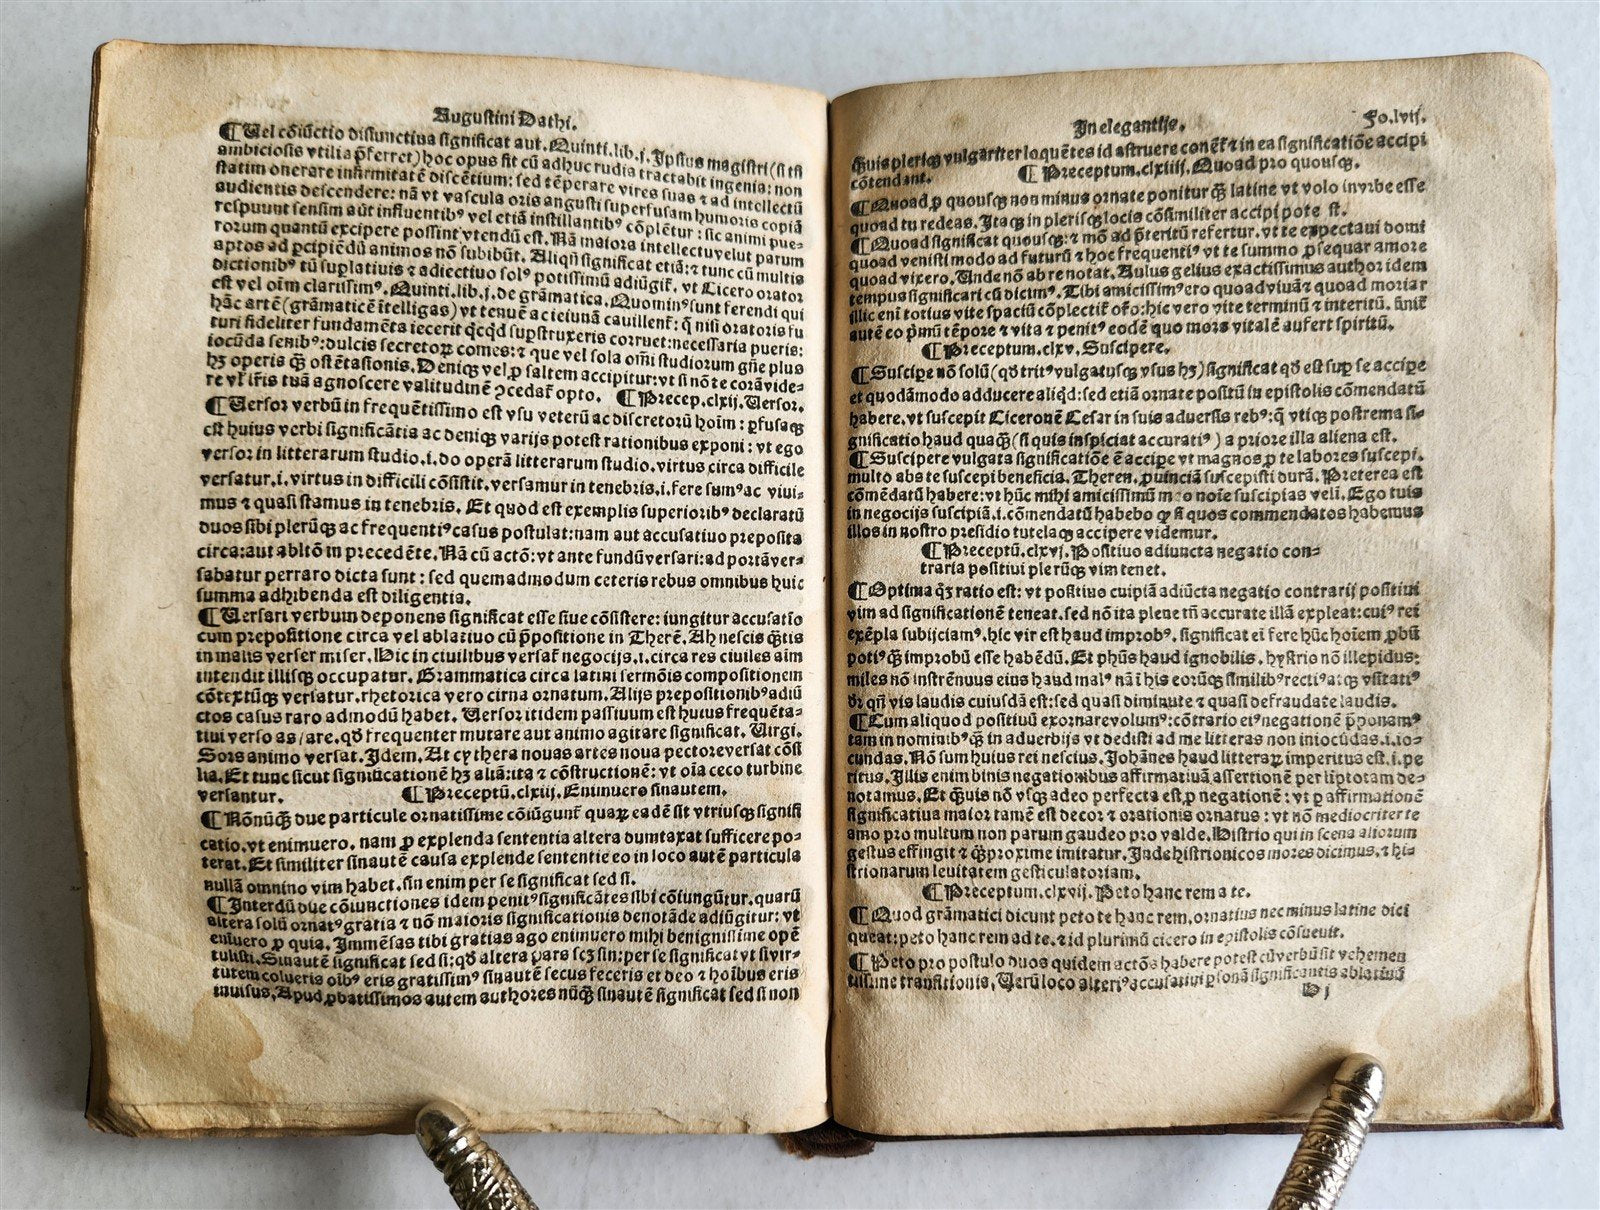 Augustini Dathi.
¶ Uel cõiũctio disiunctiua significat aut. Quinti. lib. j. Ipsius magistri (si tñ
ambiciosis vtilia p̃ferret) hoc opus sit cũ adhuc rudia tractabit ingenia: non
statim onerare infirmitatẽ discẽtium: sed tẽperare vires suas ⁊ ad intellectũ
audientis descendere: nã vt vascula oris angusti superfusam humoris copiã
respuunt sensim aũt influentibꝰ vel etiã instillantibꝰ cõplẽtur: sic animi pue-
rorum quantũ excipere possint vtendũ est. Nã maiora intellectu velut parum
aptos ad ꝑcipiẽdũ animos nõ subibũt. Aliqñ significat etiã: ⁊ tunc cũ multis
dictionibꝰ tũ suꝑlatiuis ⁊ adiectiuo solꝰ potissimũ adiũgit̃. vt Cicero orator
est vel oĩm clarissimꝰ. Quinti. lib. j. de grãmatica. Quominꝰ sunt ferendi qui
hãc artẽ (grãmaticẽ ĩtelligas) vt tenuẽ ac ieiunã cauillent̃: q̃ nisi oratoris fu
turi fideliter fundamẽta iecerit q̃cq̃d suꝑstruxeris corruet: necessaria pueris:
iocũda senibꝰ: dulcis secretoꝝ comes: ⁊ que vel sola oĩn studiorum gñe plus
hꝫ operis q̃ꝫ ostẽtasionis. Deniqꝫ vel ꝓ saltem accipitur: vt si nõ te corã vide-
re vl̃ lr̃is tuã agnoscere valitudinẽ ꝯcedat̃ opto. ¶ Precep. clxij. Uersor.
¶ Uersor verbũ in frequẽtissimo est vsu veterũ ac discretorũ hoĩm: ꝑfusaqꝫ
est huius verbi significãtia ac deniqꝫ varijs potest rationibus exponi: vt ego
versor in litterarum studio. i. do operã litterarum studio. virtus circa difficile
versatur. i. virtus in difficili cõsistit. versamur in tenebris. i. fere sumꝰ ac viui-
mus ⁊ quasi stamus in tenebris. Et quod est exemplis superioribꝰ declaratũ
duos sibi plerũqꝫ ac frequentiꝰ casus postulat: nam aut accusatiuo preposita
circa: aut abltõ in precedẽte. Nã cũ actõ: vt ante fundũ versari: ad portã ver-
sabatur perraro dicta sunt: sed quemadmodum ceteris rebus omnibus huic
summa adhibenda est diligentia.
¶ Uersari verbum deponens significat esse siue cõsistere: iungitur accusatio
cum prepositione circa vel ablatiuo cũ p̃positione in Therẽ. Ah nescis q̃ꝫtis
in malis verser miser. Hic in ciuilibus versat̃ negocijs. i. circa res ciuiles aĩm
intendit illisqꝫ occupatur. Grammatica circa latini sermõis compositionem
cõtextũqꝫ versatur. rhetorica vero cirna ornatum. Alijs prepositionibꝰ adiũ
ctos casus raro admodũ habet. Uersor itidem passiuum est huius frequẽta-
tiui verso as / are. qð frequenter mutare aut animo agitare significat. Uirgi.
Sors animo versat. Idem. Et cythera nouas artes noua pectore versat cõsi
lia. Et tunc sicut significationẽ hꝫ aliã: ita ⁊ cõstructionẽ: vt oĩa ceco turbine
versantur. ¶ Preceptũ. clxiij. Enimuero sinautem.
¶ Nõnũq̃ꝫ due particule ornatissime cõiũgunt̃ quaꝝ eadẽ sit vtriusqꝫ signifi
catio. vt enimuero. nam ꝓ explenda sententia altera dumtaxat sufficere po-
terat. Et similiter sinautẽ causa explende sententie eo in loco autẽ particula
nullã omnino vim habet. sin enim per se significat sed si.
¶ Interdũ due cõiunctiones idem penitꝰ significãtes sibi cõiungũtur. quarũ
altera solũ ornatꝰ gratia ⁊ nõ maioris significationis denotãde adiũgitur: vt
enĩuero ꝓ quia. Immẽsas tibi gratias ago enimuero mihi benignissime opẽ
tulisti. Sinautẽ significat sed si: qð altera pars scꝫ sin: per se significat vt si vir-
tutem colueris oĩbꝰ eris gratissimꝰ sinautẽ secus feceris et deo ⁊ hoĩbus eris
inuisus, Apud ꝓbatissimos autem authores nũq̃ꝫ sinautẽ significat sed si non
In elegantijs. Fo. lvij.
suis pleriqꝫ vulgariter loquẽtes id astruere conẽt̃ ⁊ in ea significatiõe accipi
cõtendant. ¶ Preceptum. clxiiij. Quoad pro quousqꝫ.
¶ Quoad ꝓ quousqꝫ non minus ornate ponitur q̃ꝫ latine vt volo in vrbe esse
quoad tu redeas. Itaqꝫ in plerisqꝫ locis cõsimiliter accipi potest.
¶ Quoad significat quousqꝫ: ⁊ mõ ad p̃teritũ refertur. vt te expectaui domi
quoad venisti modo ad futurũ ⁊ hoc frequentiꝰ vt te summo ꝓsequar amore
quoad vixero. Unde nõ ab re notat. Aulus gelius exactissimus author idem
tempus significari cũ dicimꝰ. Tibi amicissimꝰ ero quoad viuã ⁊ quoad moriar
illic eni totius vite spaciũ cõplectit̃ or̃o: hic vero vite terminũ ⁊ interitũ. finit̃
autẽ eo p̃mũ tẽpore ⁊ vita ⁊ penitꝰ eodẽ quo mors vitalẽ aufert spiritũ.
¶ Preceptum. clxv. Suscipere.
¶ Suscipe nõ solũ (qð tritꝰ vulgatusqꝫ vsus hꝫ) significat qð est suꝑ se accipe
et quodãmodo adducere aliq̃d: sed etiã ornate positũ in epistolis cõmendatũ
habere. vt suscepit Ciceronẽ Cesar in suis aduersis rebꝰ: q̃ vtiqꝫ postrema si-
gnificatio haud quaq̃ꝫ (si quis inspiciat accuratiꝰ) a priore illa aliena est.
¶ Suscipere vulgata significatiõe ẽ accipe vt magnos ꝓ te labores suscepi.
multo abs te suscepi beneficia. Theren. ꝓuinciã suscepisti durã. Preterea est
cõmẽdatũ habere: vt hũc mihi amicissimũ meo noĩe suscipias veli. Ego tuis
in negocijs suscipiã. i. cõmendatũ habebo ꝙ si quos commendatos habemus
illos in nostro presidio tutelaqꝫ accipere videmur.
¶ Preceptũ. clxvj. Positiuo adiuncta negatio con-
traria positiui plerũqꝫ vim tenet.
¶ Optima q̃ꝫ ratio est: vt positiuo cuipiã adiũcta negatio contrarij positiui
vim ad significationẽ teneat. sed nõ ita plene tñ accurate illã expleat: cuiꝰ rei
exẽpla subijciamꝰ. hic vir est haud improbꝰ. significat ei fere hũc hoĩem ꝓbũ
potiꝰ q̃ꝫ improbũ esse habẽdũ. Et ph̃us haud ignobilis. hystrio nõ illepidus:
miles nõ instrẽnuus eius haud malꝰ nã ĩ his eorũqꝫ similibꝰ rectiꝰ atqꝫ vsitatiꝰ
dr̃ qñ vis laudis cuiusdã est: sed quasi diminute ⁊ quasi defraudate laudis.
¶ Cum aliquod positiuũ exornare volumꝰ: cõtrario eiꝰ negationẽ p̃ponamꝰ
tam in nominibꝰ q̃ꝫ in aduerbijs vt dedisti ad me litteras non iniocũdas. i. io-
cundas. Nõ sum huius rei nescius. Johãnes haud litteraꝝ imperitus est. i. pe
ritus. Illis enim binis negationibus affirmatiuã assertionẽ per liptotam de-
notamus. Et q̃ꝫuis nõ vsqꝫ adeo perfecta est ꝓ negationẽ: vt ꝑ affirmationẽ
significatiua maior tamẽ est decor ⁊ orationis ornatus: vt nõ mediocriter te
amo pro multum non parum gaudeo pro valde. Histrio qui in scena aliorum
gestus effingit ⁊ q̃ꝫproxime imitatur. Inde histrionicos mores dicimus. ⁊ hi-
strionarum leuitatem gesticulatoriam.
¶ Preceptum. clxvij. Peto hanc rem a te.
¶ Quod grãmatici dicunt peto te hanc rem. ornatius nec minus latine dici
queat: peto hanc rem ad te. ⁊ id plurimũ cicero in epistolis cõsueuit.
¶ Peto pro postulo duos quidem actõs habere potest cũ verbũ sit vehemen
tissime transitionis. Uerũ loco alteriꝰ accusatiui ꝑsonã significantis ablatiuũ
H j